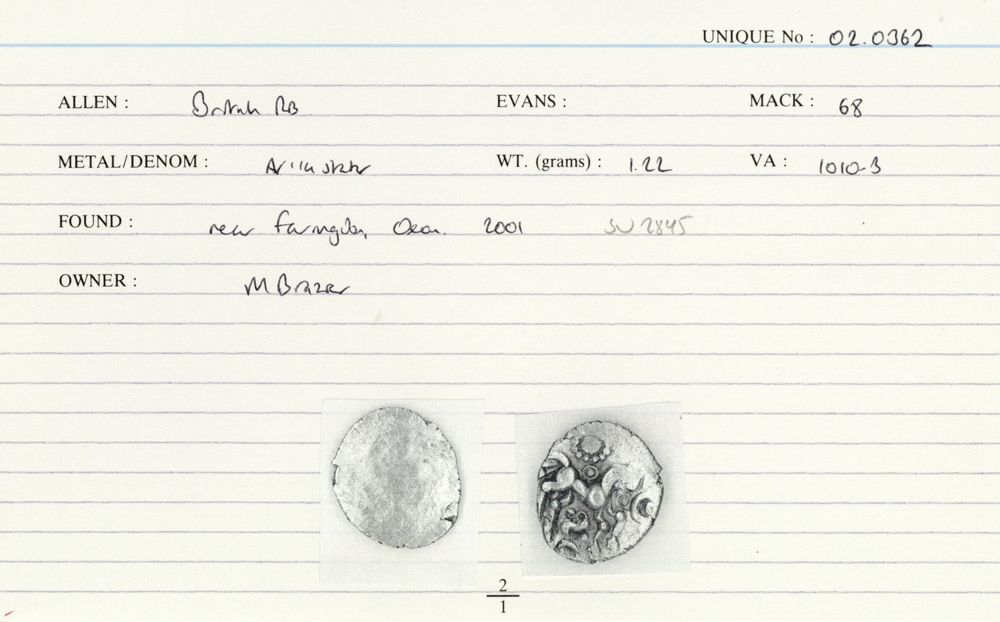 UNIQUE No : 02.0362
ALLEN : British RB EVANS : MACK : 68
METAL/DENOM : WT. (grams) : 1.22 VA : 1010-3
FOUND : near Faringdon, Oxon. 2001 SU 2845
OWNER : M Brazer
2
1